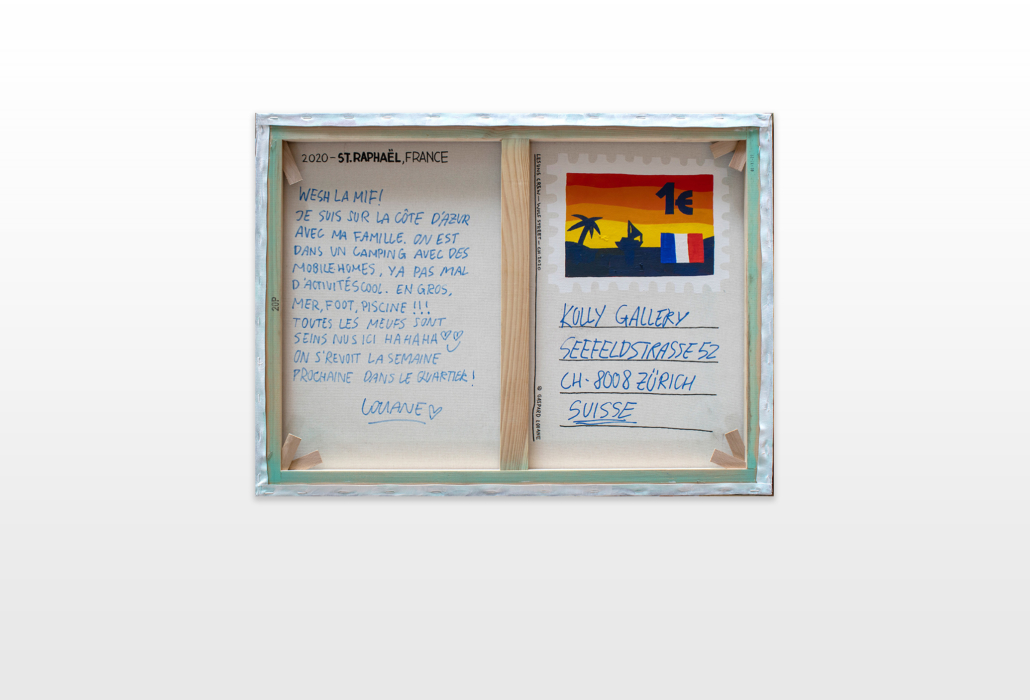 2020 - ST. RAPHAËL, FRANCE
WESH LA MIF!
JE SUIS SUR LA CÔTE D'AZUR
AVEC MA FAMILLE. ON EST
DANS UN CAMPING AVEC DES
MOBILE HOMES, YA PAS MAL
D'ACTIVITÉS COOL. EN GROS,
MER, FOOT, PISCINE !!!
TOUTES LES MEUFS SONT
SEINS NUS ICI HAHAHA
ON S'REVOIT LA SEMAINE
PROCHAINE DANS LE QUARTIER!
LOUANE
20P
1€
KOLLY GALLERY
SEEFELDSTRASSE 52
CH-8008 ZÜRICH
SUISSE